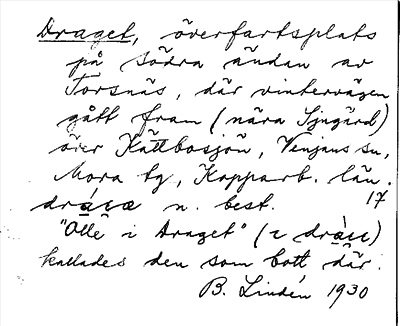 Draget, överfartsplats
på södra ändan av
Torsnäs, där vintervägen
gått fram (nära Sjugård)
över Kättbosjön, Venjans sn,
Mora tg, Kopparb. län.
n. best. 17
"Olle i Draget" (
kallades den som bott där.
B. Lindén 1930